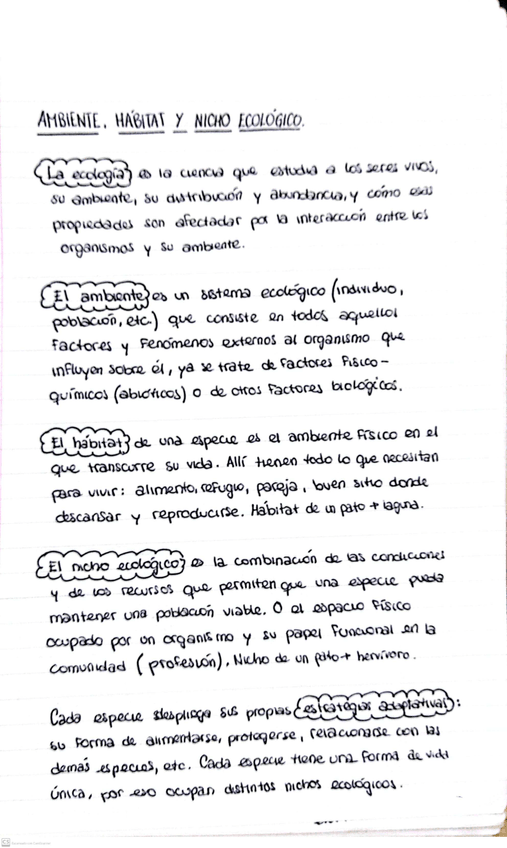 AMBIENTE, HÁBITAT Y NICHO ECOLÓGICO.
La ecología es la ciencia que estudia a los seres vivos,
su ambiente, su distribución y abundancia, y cómo esas
propiedades son afectadar por la interacción entre los
organismos y su ambiente.
El ambiente es un sistema ecológico (individuo,
población, etc.) que consiste en todos aquellos
factores y fenómenos externos al organismo que
influyen sobre él, ya se trate de factores físico-
químicos (abióticos) o de otros factores biológicos.
El hábitat, de una especie es el ambiente físico en el
que transcurre su vida. Allí tienen todo lo que necesitan
para vivir: alimento, refugio, pareja, buen sitio donde
descansar y reproducirse. Hábitat de un pato → laguna.
El nicho ecológico es la combinación de las condiciones
y de los recursos que permiten que una especie pueda
mantener una población viable. O el espacio físico
ocupado por un organismo y su papel funcional en la
comunidad (profesión). Nicho de un pato → hervívoro.
Cada especie despliega sus propias estratégias adaptativas:
su forma de alimentarse, protegerse, relacionarse con las
demás especies, etc. Cada especie tiene una forma de vida
única, por eso ocupan distintos nichos ecológicos.